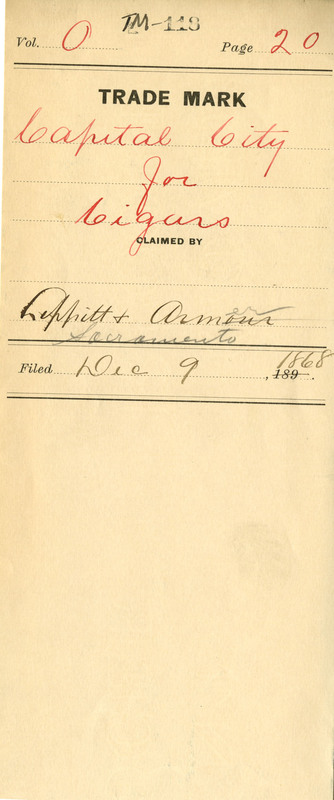 TM-118
Vol. O Page 20
TRADE MARK
Capital City
for
Cigars
CLAIMED BY
er
Lippitt & Armour
Sacramento
Filed Dec 9, 1868
189 .